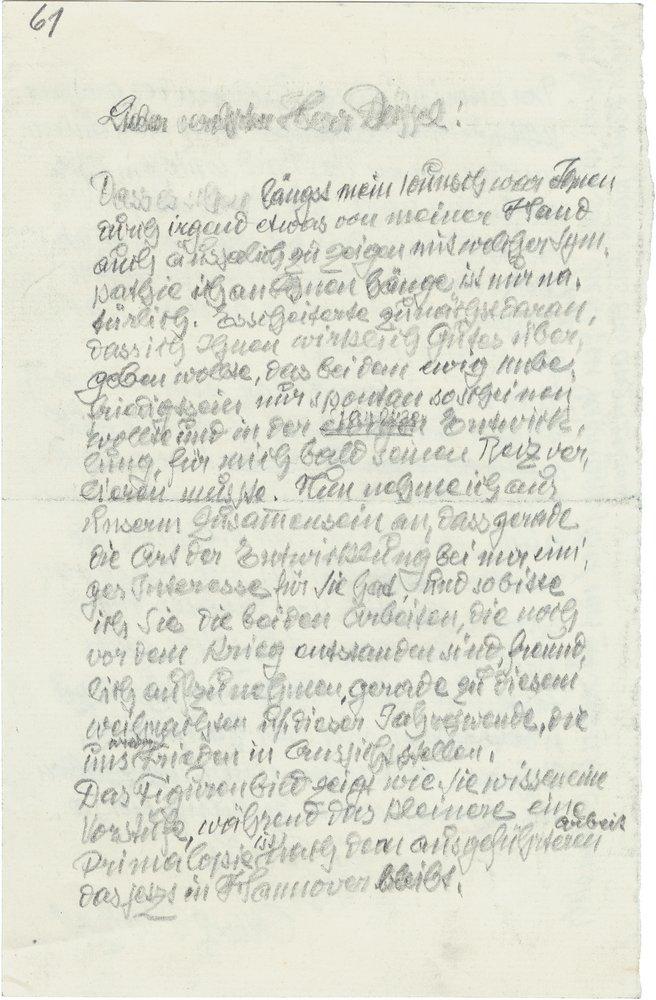 61
Lieber verehrter Herr Deppel!
Dass es schon längst mein Wunsch war Ihnen
durch irgend etwas von meiner Hand
auch äusserlich zu zeigen mit welcher Sym,
pathie ich an Ihnen hänge ist nur na,
türlich. Es scheiterte zunächst daran,
dass ich Ihnen wirklich Gutes über,
geben wollte, das bei dem ewig unbe,
friedigt sein nur spontan so scheinen
wollte und in der Entwick,
lung, für mich bald seinen Reiz ver,
lieren musste. Nun nehme ich aus
unserm Zusamensein an, dass gerade
die Art der Entwicklung bei mir eini,
ges Interesse für Sie hat, und so bitte
ich Sie die beiden Arbeiten, die noch
vor dem Krieg entstanden sind, freund,
lich aufzunehmen, gerade zu diesem
Weihnachten u/ dieser Jahreswende, die
uns wieder Frieden in Aussicht stellen.
Das Figurenbild zeigt wie Sie wissen eine
Vorstufe, während das kleinere eine
Primalopie ist nach dem ausgeführteren arbeit
das jetzt in Hannover bleibt.